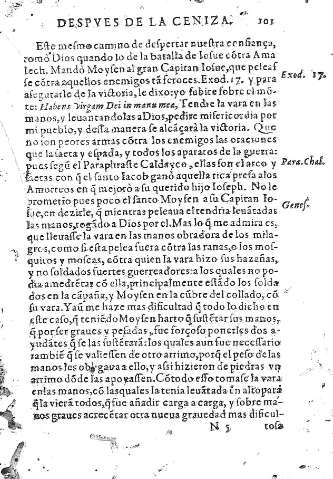 DESPVES DE LA CENIZA. 101
Este mesmo camino de despertar nuestra confiança,
tomó Dios quando lo de la batalla de Iosue cõtra Ama
lech. Mandó Moysen al gran Capitan Iosue, que peleas
se cõtra aquellos enemigos tã feroces. Exod. 17. y para
assegurarle de la victoria, le dixo: yo subire sobre el mõ-
te: Habens Virgam Dei in manu mea, Tendre la vara en las
manos, y leuantandolas a Dios, pedire misericordia por
mi pueblo, y desta manera se alcãçarà la victoria. Que
no son peores armas cõtra los enemigos las oraciones
que la saeta y espada, y todos los aparatos de la guerra:
pues segũ el Paraphraste Caldayco, ellas son el arco y
saetas con q̃ el santo Iacob ganò aquella rica presa a los
Amorreos en q̃ mejorò a su querido hijo Ioseph. No le
prometio pues poco el santo Moysen a su Capitan Io-
sue, en dezirle, q̃ mientras peleaua el tendria leuãtadas
las manos, rogãdo a Dios por el. Mas lo q̃ me admira es,
que lleuasse la vara en las manos obradora de los mila-
gros, como si esta pelea fuera cõtra las ranas, o los mos-
quitos y moscas, cõtra quien la vara hizo sus hazañas,
y no soldados fuertes guerreadores: a los quales no po-
dia amedrẽtar cõ ella, principalmente estãdo los solda
dos en la cãpaña, y Moysen en la cũbre del collado, cõ
su vara. Y aũ me haze mas dificultad q̃ todo lo dicho en
este caso, q̃ teniẽdo Moysen harto q̃ sustẽtar sus manos,
q̃ por ser graues y pesadas, fue forçoso ponerles dos a-
yudãtes q̃ se las sustẽtarã: los quales aun fue necessario
tambiẽ q̃ se valiessen de otro arrimo, porq̃ el peso de las
manos les obligaua a ello, y assi hizieron de piedras vn
arrimo dõde las apoyassen. Cõ todo esso tomasse la vara
en las manos, cõ las quales la tenia leuãtada en alto para
q̃ la vierã todos, q̃ fue añadir carga a carga, y sobre ma-
nos graues acrecẽtar otra nueua grauedad mas dificul-
N 5 tosa
Exod. 17.
Para. Chal.
Genes.